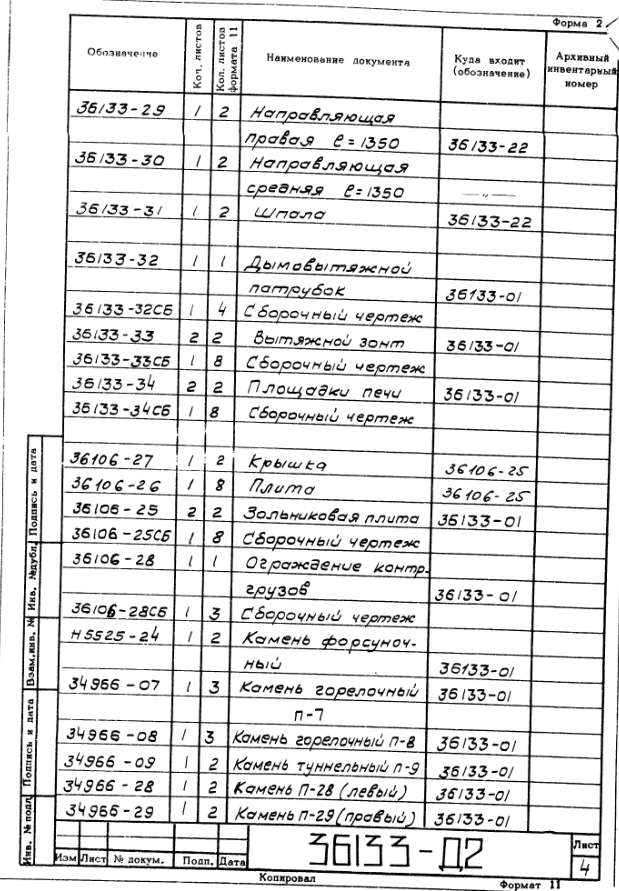 Форма 2
Обозначение Кол. листов Кол. листов формата 11 Наименование документа Куда входит (обозначение) Архивный инвентарный номер
36133-29 1 2 Направляющая
правая ℓ=1350 36133-22
36133-30 1 2 Направляющая
средняя ℓ=1350 —〃—
36133-31 1 2 Шпала 36133-22
36133-32 1 1 Дымовытяжной
патрубок 36133-01
36133-32СБ 1 4 Сборочный чертеж
36133-33 2 2 Вытяжной зонт 36133-01
36133-33СБ 1 8 Сборочный чертеж
36133-34 2 2 Площадки печи 36133-01
36133-34СБ 1 8 Сборочный чертеж
36106-27 1 2 Крышка 36106-25
36106-26 1 8 Плита 36106-25
36106-25 2 2 Зольниковая плита 36133-01
36106-25СБ 1 8 Сборочный чертеж
36106-28 1 1 Ограждение контр-
грузов 36133-01
36106-28СБ 1 3 Сборочный чертеж
Н5525-24 1 2 Камень форсуноч-
ный 36133-01
34966-07 1 3 Камень горелочный 36133-01
П-7
34966-08 1 3 Камень горелочный П-8 36133-01
34966-09 1 2 Камень туннельный П-9 36133-01
34966-28 1 2 Камень П-28 (левый) 36133-01
34966-29 1 2 Камень П-29 (правый) 36133-01
Подпись и дата
Инв. № дубл.
Взам. инв. №
Подпись и дата
Инв. № подл.
Изм Лист № докум. Подп. Дата
36133-Д2
Лист
4
Копировал
Формат 11